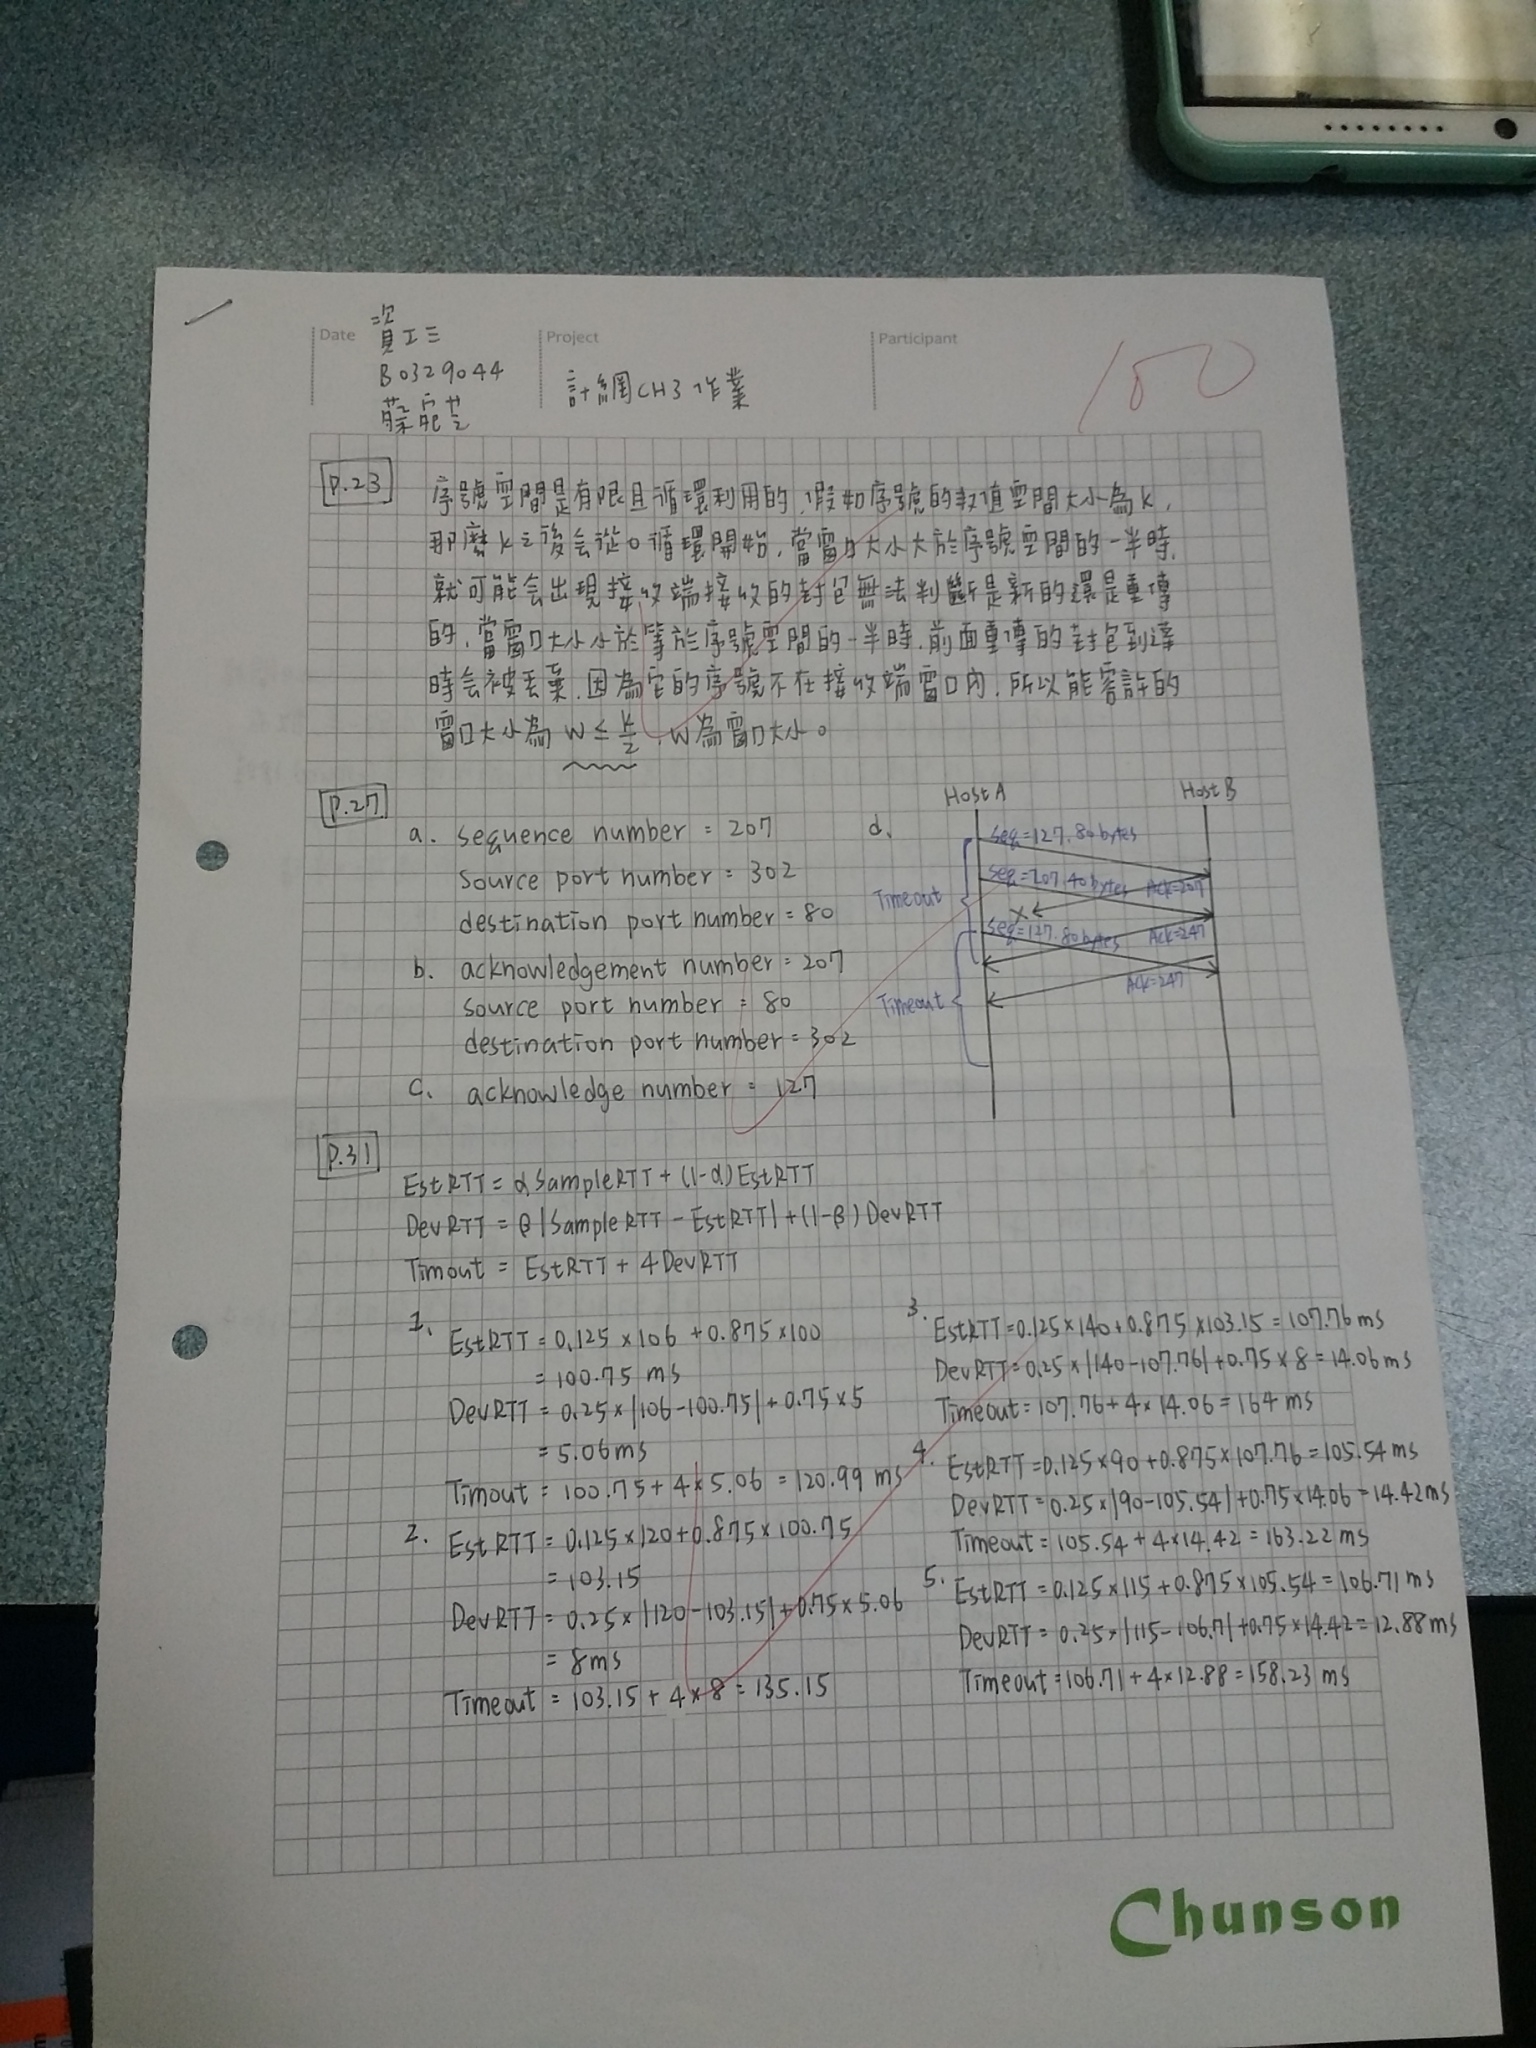 Date
資工三
B0329044
Project
計網CH3作業
Participant
100
P.23
序號空間是有限且循環利用的,假如序號的數值空間大小為k,
那麼k之後会從0循環開始,當窗口大小大於序號空間的一半時,
就可能会出現接收端接收的封包無法判斷是新的還是重傳
的,當窗口大小小於等於序號空間的一半時,前面重傳的封包到達
時会被丟棄,因為它的序號不在接收端窗口內,所以能容許的
窗口大小為 W ≤ k/2, W為窗口大小。
P.27
a. sequence number = 207
source port number = 302
destination port number = 80
b. acknowledgement number = 207
source port number = 80
destination port number = 302
c. acknowledge number = 127
d.
Host A
Host B
Seq=127.80bytes
Seq=207.40bytes
Ack=207
Timeout
X
Seq=127.80bytes
Ack=247
Ack=247
Timeout
P.31
EstRTT = αSampleRTT + (1-α)EstRTT
DevRTT = β|SampleRTT - EstRTT| + (1-β)DevRTT
Timout = EstRTT + 4DevRTT
1. EstRTT = 0.125 × 106 + 0.875 × 100
= 100.75 ms
DevRTT = 0.25 × |106 - 100.75| + 0.75 × 5
= 5.06ms
Timout = 100.75 + 4 × 5.06 = 120.99 ms
2. EstRTT = 0.125 × 120 + 0.875 × 100.75
= 103.15
DevRTT = 0.25 × |120 - 103.15| + 0.75 × 5.06
= 8ms
Timeout = 103.15 + 4 × 8 = 135.15
3. EstRTT = 0.125 × 140 + 0.875 × 103.15 = 107.76 ms
DevRTT = 0.25 × |140 - 107.76| + 0.75 × 8 = 14.06 ms
Timeout = 107.76 + 4 × 14.06 = 164 ms
4. EstRTT = 0.125 × 90 + 0.875 × 107.76 = 105.54 ms
DevRTT = 0.25 × |90 - 105.54| + 0.75 × 14.06 = 14.42 ms
Timeout = 105.54 + 4 × 14.42 = 163.22 ms
5. EstRTT = 0.125 × 115 + 0.875 × 105.54 = 106.71 ms
DevRTT = 0.25 × |115 - 106.71| + 0.75 × 14.42 = 12.88 ms
Timeout = 106.71 + 4 × 12.88 = 158.23 ms
Chunson